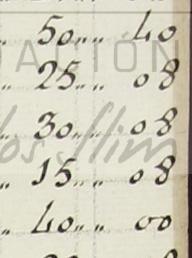 „ 50 „ „ 40
„ 25 „ „ 08
„ 30 „ „ 08
„ 15 „ „ 08
„ 40 „ „ 00